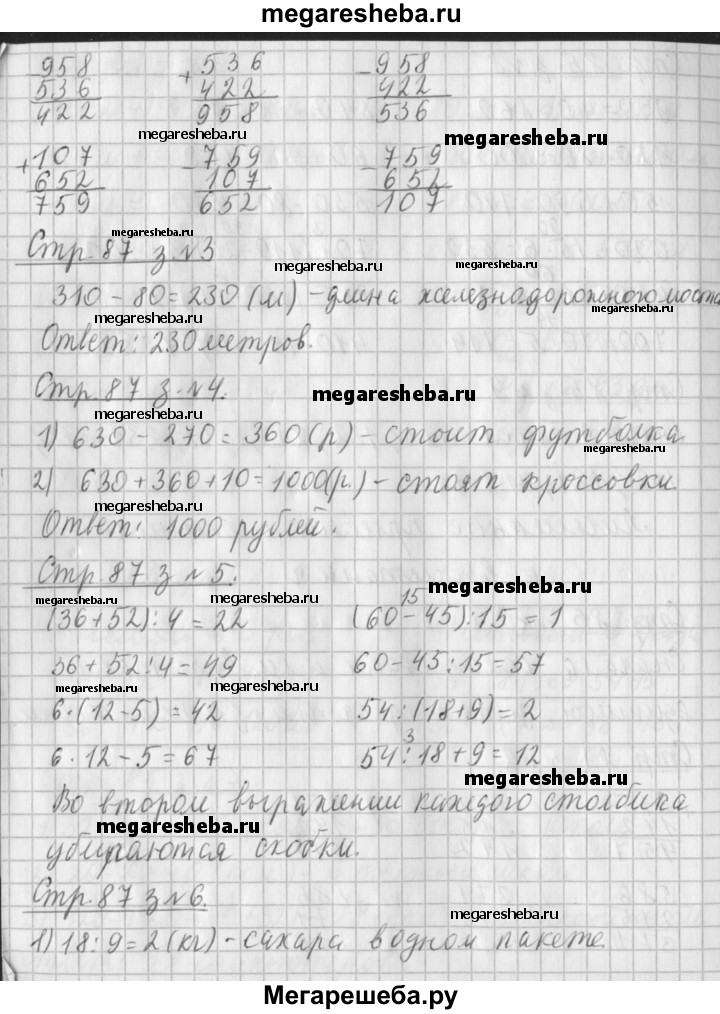 megaresheba.ru
- 958 + 536 - 958
536 422 422
422 958 536
megaresheba.ru megaresheba.ru megaresheba.ru
+ 107 - 759 - 759
652 107 652
759 652 107
megaresheba.ru megaresheba.ru
Стр. 87 з. №3
megaresheba.ru
310 - 80 = 230 (м) - длина железнодорожного моста
megaresheba.ru megaresheba.ru
Ответ: 230 метров.
megaresheba.ru
Стр. 87 з. №4.
megaresheba.ru megaresheba.ru
1) 630 - 270 = 360 (р) - стоит футболка
megaresheba.ru
2) 630 + 360 + 10 = 1000 (р.) - стоят кроссовки.
megaresheba.ru
Ответ: 1000 рублей.
Стр. 87 з №5.
megaresheba.ru megaresheba.ru 15 megaresheba.ru
(36+52):4 = 22 (60-45):15 = 1
36+52:4=49 60-45:15=57
megaresheba.ru megaresheba.ru
6·(12-5)=42 54:(18+9)=2
3
6·12-5=67 54:18+9=12
megaresheba.ru
Во втором выражении каждого столбика
megaresheba.ru
убираются скобки.
Стр. 87 з №6.
megaresheba.ru
1) 18:9=2(кг) - сахара в одном пакете.
megaresheba.ru
Мегарешеба.ру